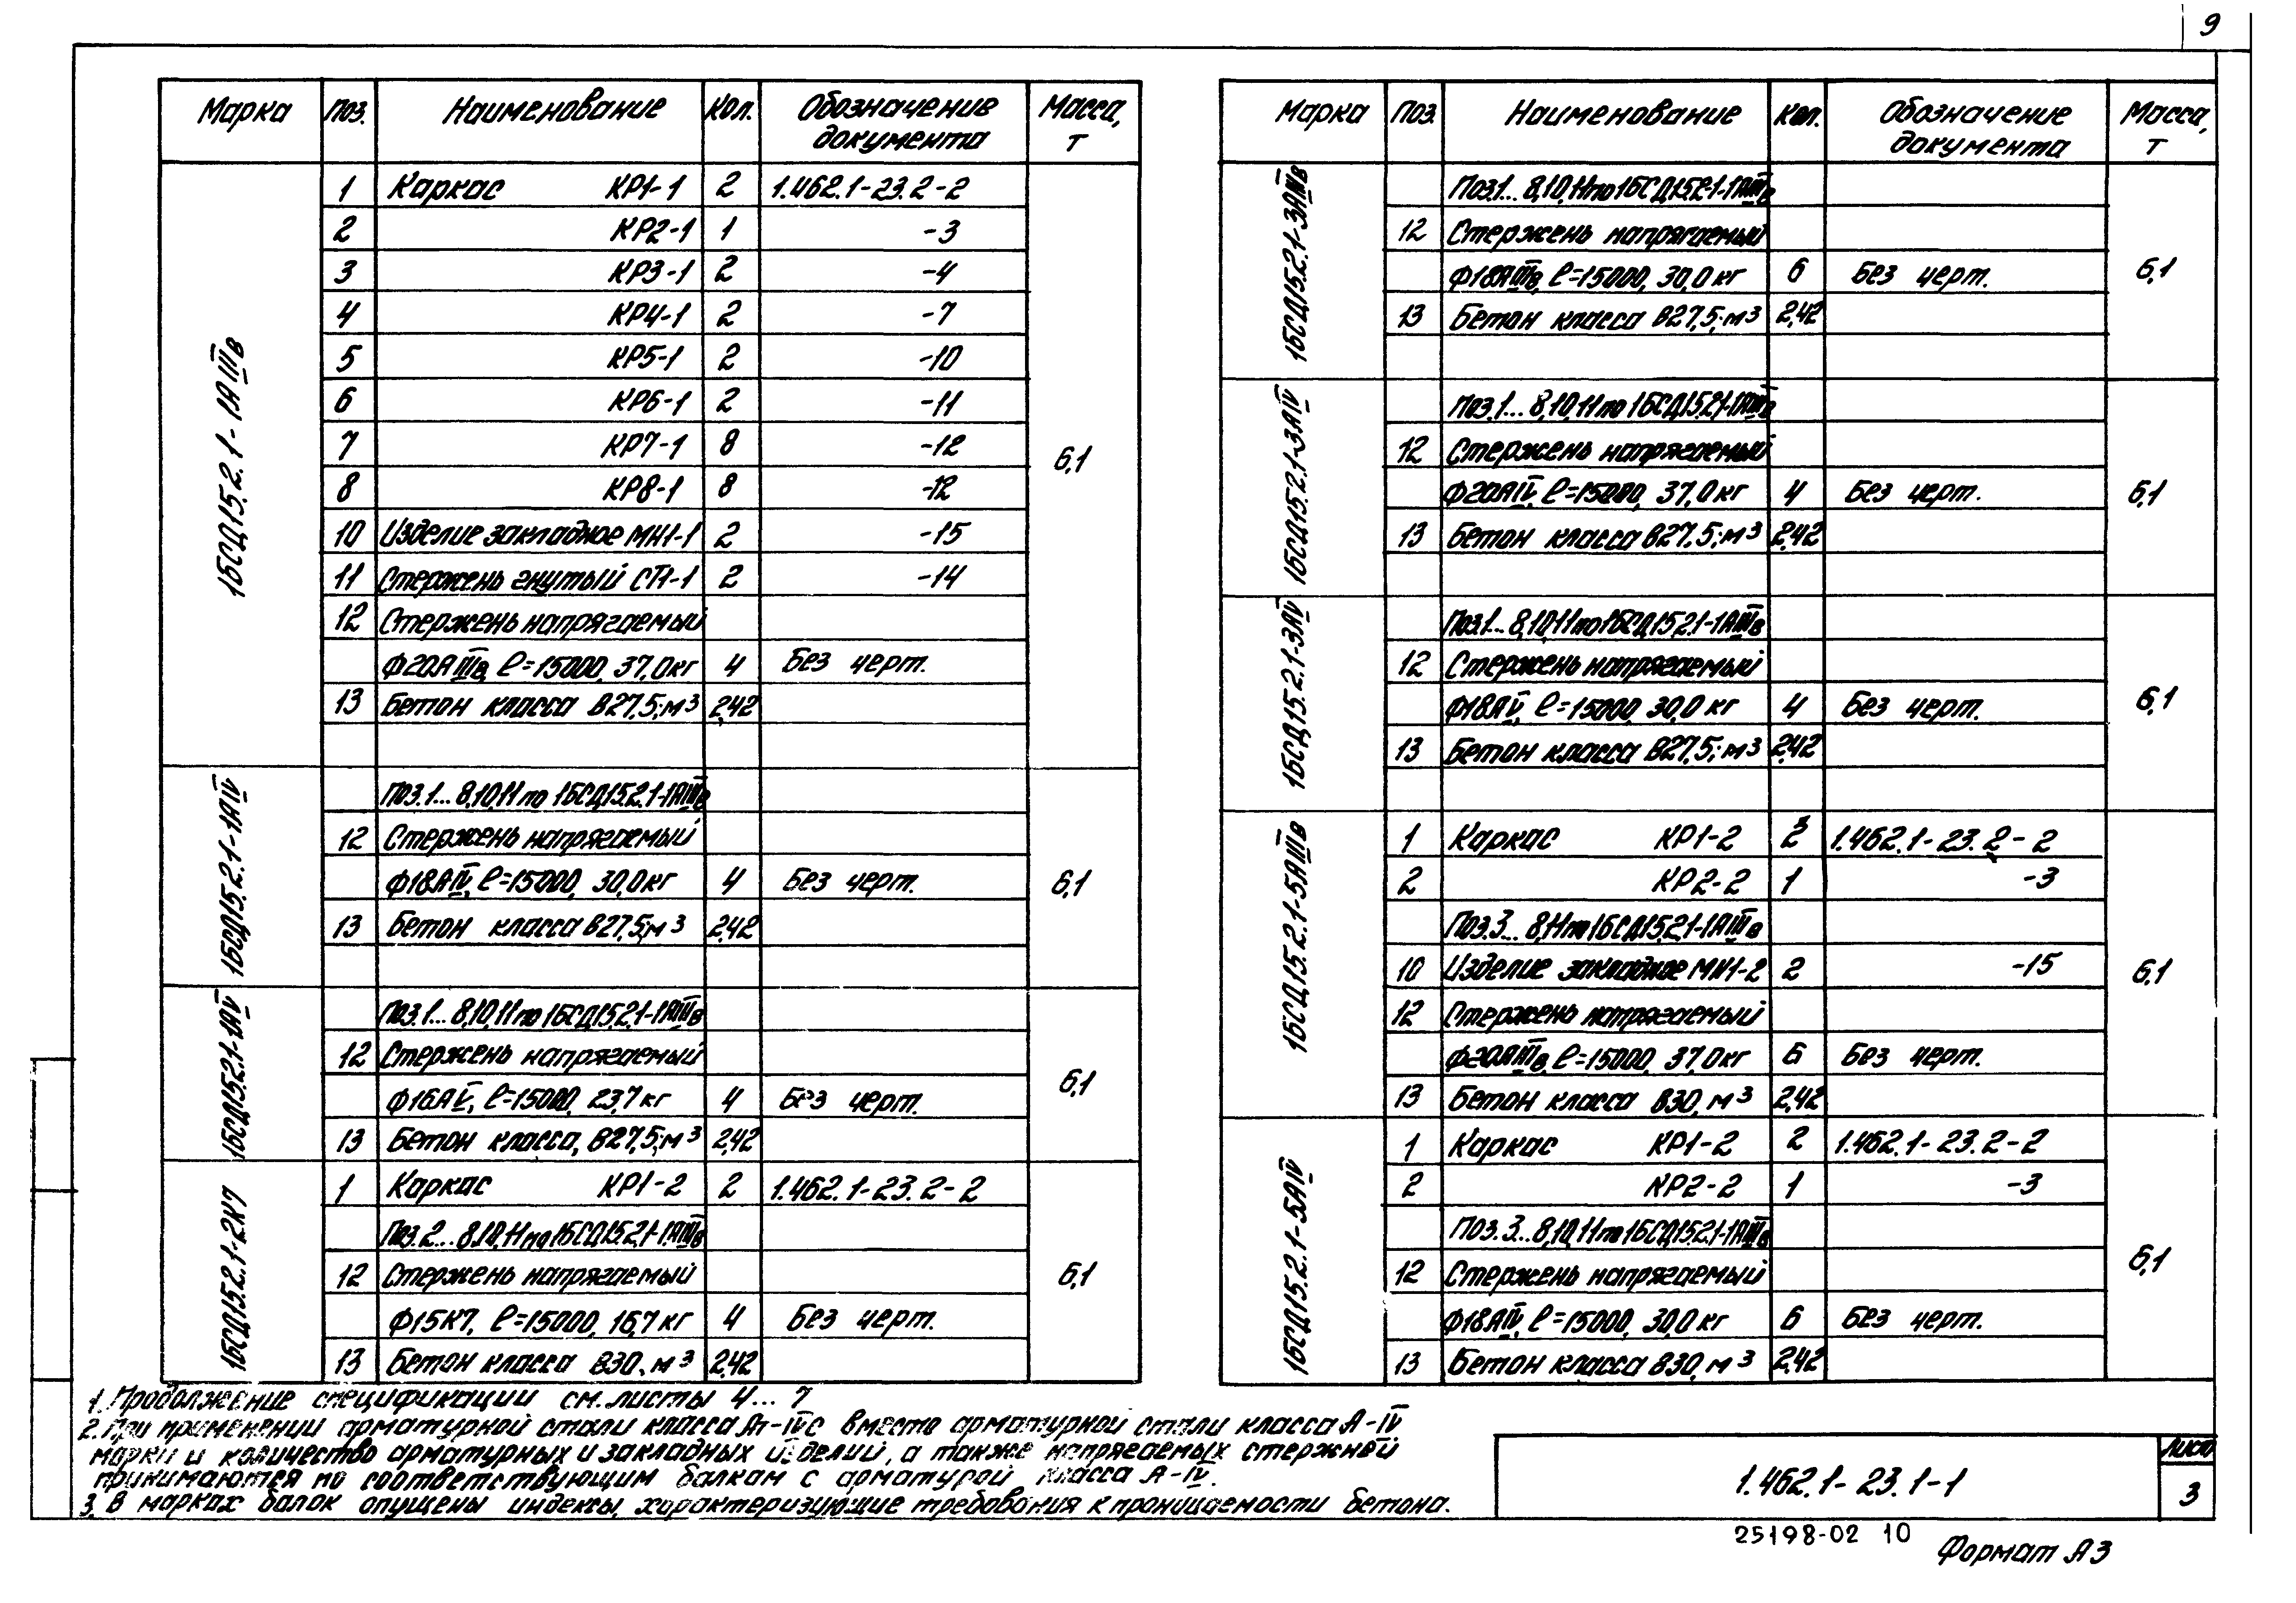 9
Марка Поз. Наименование Кол. Обозначение документа Масса, т
1БСД15.2.1-1АIIIв
1 Каркас КР1-1 2 1.462.1-23.2-2
2 КР2-1 1 -3
3 КР3-1 2 -4
4 КР4-1 2 -7
5 КР5-1 2 -10
6 КР6-1 2 -11
7 КР7-1 8 -12
8 КР8-1 8 -12
10 Изделие закладное МН1-1 2 -15
11 Стержень гнутый СТ1-1 2 -14
12 Стержень напрягаемый
Ф20АIIIв, ℓ=15000, 37,0кг 4 Без черт.
13 Бетон класса В27,5; м³ 2,42
6,1
1БСД15.2.1-1АIV
Поз.1...8,10,11 по 1БСД15.2.1-1АIIIв
12 Стержень напрягаемый
Ф18АIV, ℓ=15000, 30,0кг 4 Без черт.
13 Бетон класса В27,5; м³ 2,42
6,1
1БСД15.2.1-1АV
Поз.1...8,10,11 по 1БСД15.2.1-1АIIIв
12 Стержень напрягаемый
Ф16АV, ℓ=15000, 23,7кг 4 Без черт.
13 Бетон класса, В27,5; м³ 2,42
6,1
1БСД15.2.1-2К7
1 Каркас КР1-2 2 1.462.1-23.2-2
Поз.2...8,10,11 по 1БСД15.2.1-1АIIIв
12 Стержень напрягаемый
Ф15К7, ℓ=15000, 16,7кг 4 Без черт.
13 Бетон класса В30, м³ 2,42
6,1
Марка Поз. Наименование Кол. Обозначение документа Масса, т
1БСД15.2.1-3АIIIв
Поз.1...8,10,11 по 1БСД15.2.1-1АIIIв
12 Стержень напрягаемый
Ф18АIIIв, ℓ=15000, 30,0кг 6 Без черт.
13 Бетон класса В27,5; м³ 2,42
6,1
1БСД15.2.1-3АIV
Поз.1...8,10,11 по 1БСД15.2.1-1АIIIв
12 Стержень напрягаемый
Ф20АIV, ℓ=15000, 37,0кг 4 Без черт.
13 Бетон класса В27,5; м³ 2,42
6,1
1БСД15.2.1-3АV
Поз.1...8,10,11 по 1БСД15.2.1-1АIIIв
12 Стержень напрягаемый
Ф18АV, ℓ=15000, 30,0кг 4 Без черт.
13 Бетон класса В27,5; м³ 2,42
6,1
1БСД15.2.1-5АIIIв
1 Каркас КР1-2 2 1.462.1-23.2-2
2 КР2-2 1 -3
Поз.3...8,11 по 1БСД15.2.1-1АIIIв
10 Изделие закладное МН1-2 2 -15
12 Стержень напрягаемый
Ф20АIIIв, ℓ=15000, 37,0кг 6 Без черт.
13 Бетон класса В30, м³ 2,42
6,1
1БСД15.2.1-5АIV
1 Каркас КР1-2 2 1.462.1-23.2-2
2 КР2-2 1 -3
Поз.3...8,10,11 по 1БСД15.2.1-1АIIIв
12 Стержень напрягаемый
Ф18АIV, ℓ=15000, 30,0кг 6 Без черт.
13 Бетон класса В30, м³ 2,42
6,1
1. Продолжение спецификации см. листы 4...7
2. При применении арматурной стали класса Ат-IVС вместо арматурной стали класса А-IV
марки и количество арматурных и закладных изделий, а также напрягаемых стержней
принимаются по соответствующим балкам с арматурой класса А-IV.
3. В марках балок опущены индексы, характеризующие требования к проницаемости бетона.
1.462.1-23.1-1
Лист
3
25198-02 10
Формат А3